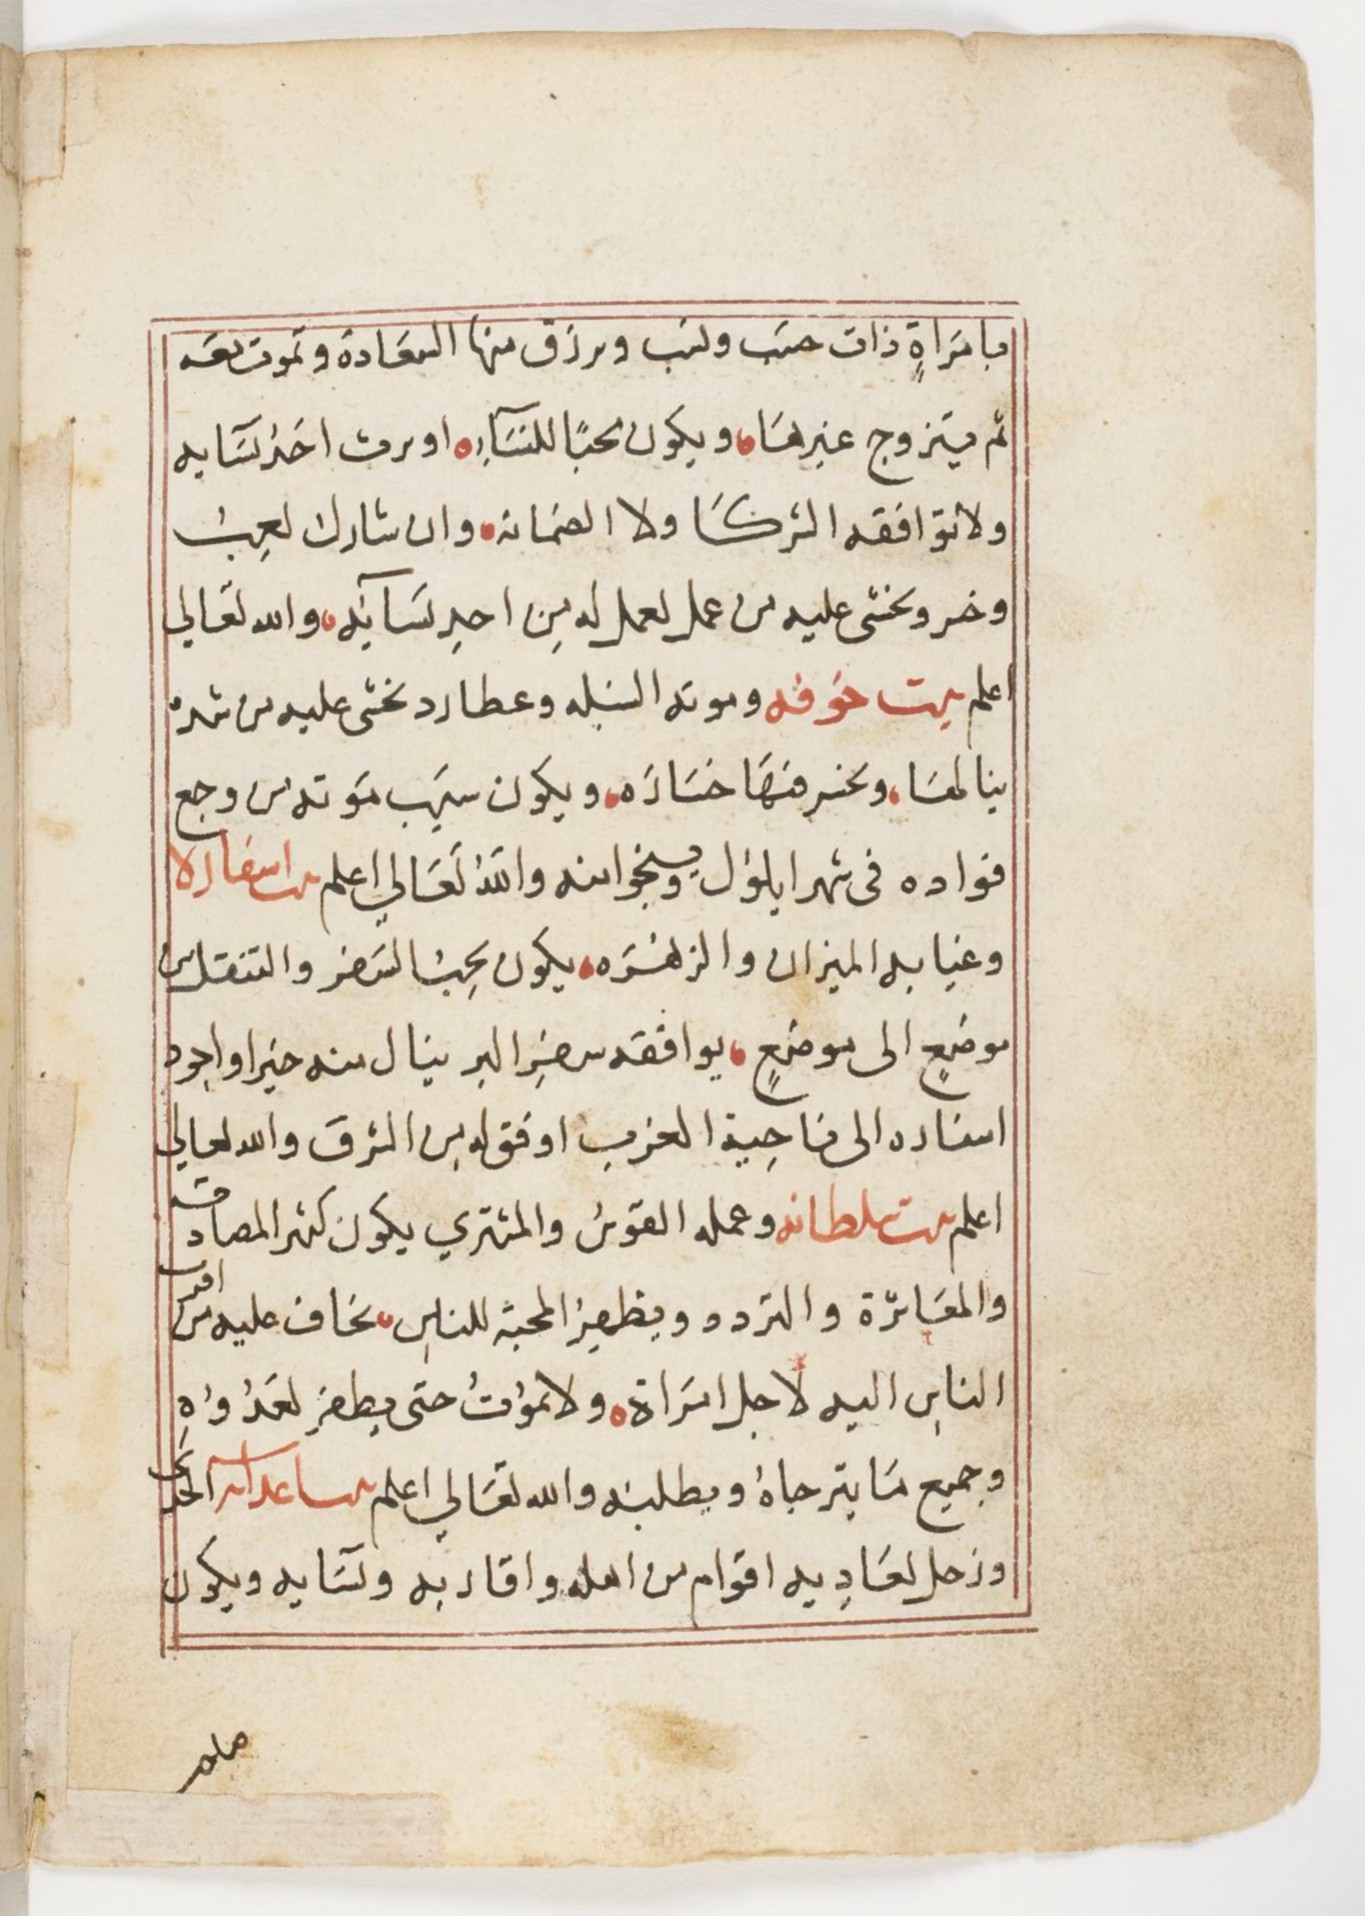 بامراةٍ ذات حسب ونسب ويرزق منها السعادة وتموت معه
ثم يتزوج غيرها ويكون محبًا للنسآء اويرث احد نسايه
ولا توافقه الشركا ولا الضمانه وان شارك لعب
وخسر ويخشى عليه من عمل يعمل له من احد نسآيه والله تعالي
اعلم بيت خوفه وموته السنبله وعطارد يخشى عليه من شدة
ينالها ويخسر فيها خساره ويكون سبب موته من وجع
فواده في شهر ايلول وينجوا منه والله تعالي اعلم بيت اسفاره
وغيابه الميزان والزهره يكون يحب السفر والتنقل من
موضعٍ الى موضعٍ يوافقه سفر البر ينال منه خيرا واجود
اسفاره الى ناحية الغرب اوفق له من الشرق والله تعالي
اعلم بيت سلطانه وعمله القوس والمشتري يكون كثير المصادقه
والمعاشرة والتردد ويظهر المحبة للناس يخاف عليه من اقرب
الناس اليه لاجل امراة ولا يموت حتى يظفر بعدوه
وجميع ما يترجاه ويطلبه والله تعالي اعلم بيت اعدايه الجدي
وزحل تعاديه اقوام من اهله واقاربه ونسايه ويكون